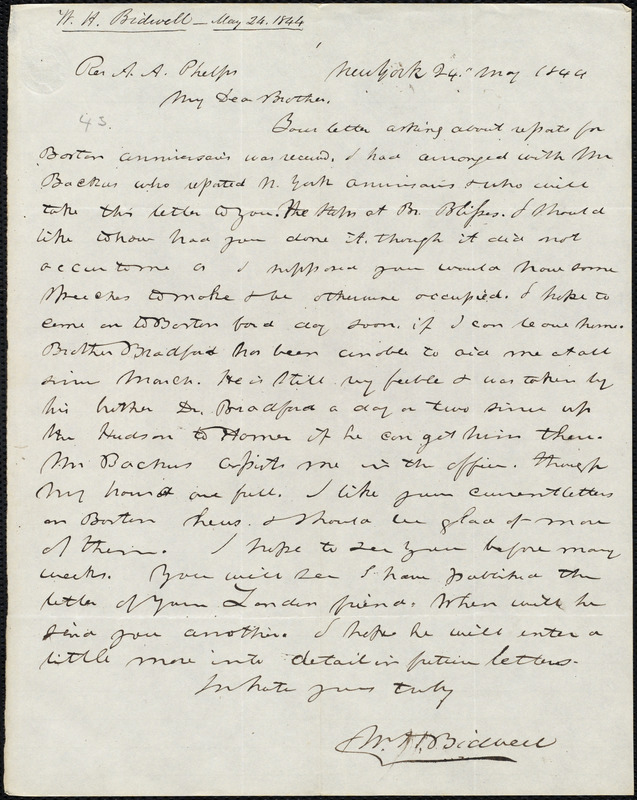 W. H. Bidwell – May 24. 1844
Rev A. A. Phelps New York 24. May 1844
My Dear Brother.
43.
Your letter asking about reports for
Boston anniversaries was received. I had arranged with Mr
Backus who reported N. York anniversaries & who will
take this letter to you. He stops at Br. Bliss's. I should
like to have had you done it. though it did not
occur to me as I supposed you would have some
speeches to make & be otherwise occupied. I hope to
come on to Boston for a day soon. if I can leave home.
Brother Bradford has been unable to aid me at all
since March. He is still very feeble & was taken by
his brother Dr. Bradford a day or two since up
the Hudson to Homer if he can get him there.
Mr Backus assists me in the office. though
my hands are full. I like your current letters
on Boston news. & should be glad of more
of them. I hope to see you before many
weeks. You will see I have published the
letter of your London friend. When will he
send you another. I hope he will enter a
little more into detail in future letters.
In haste yours truly
Wm. H. Bidwell